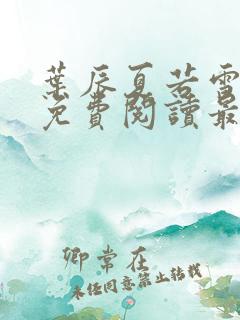 葉辰夏若雪
免費閱讀最
卿常在
未经同意禁止转载